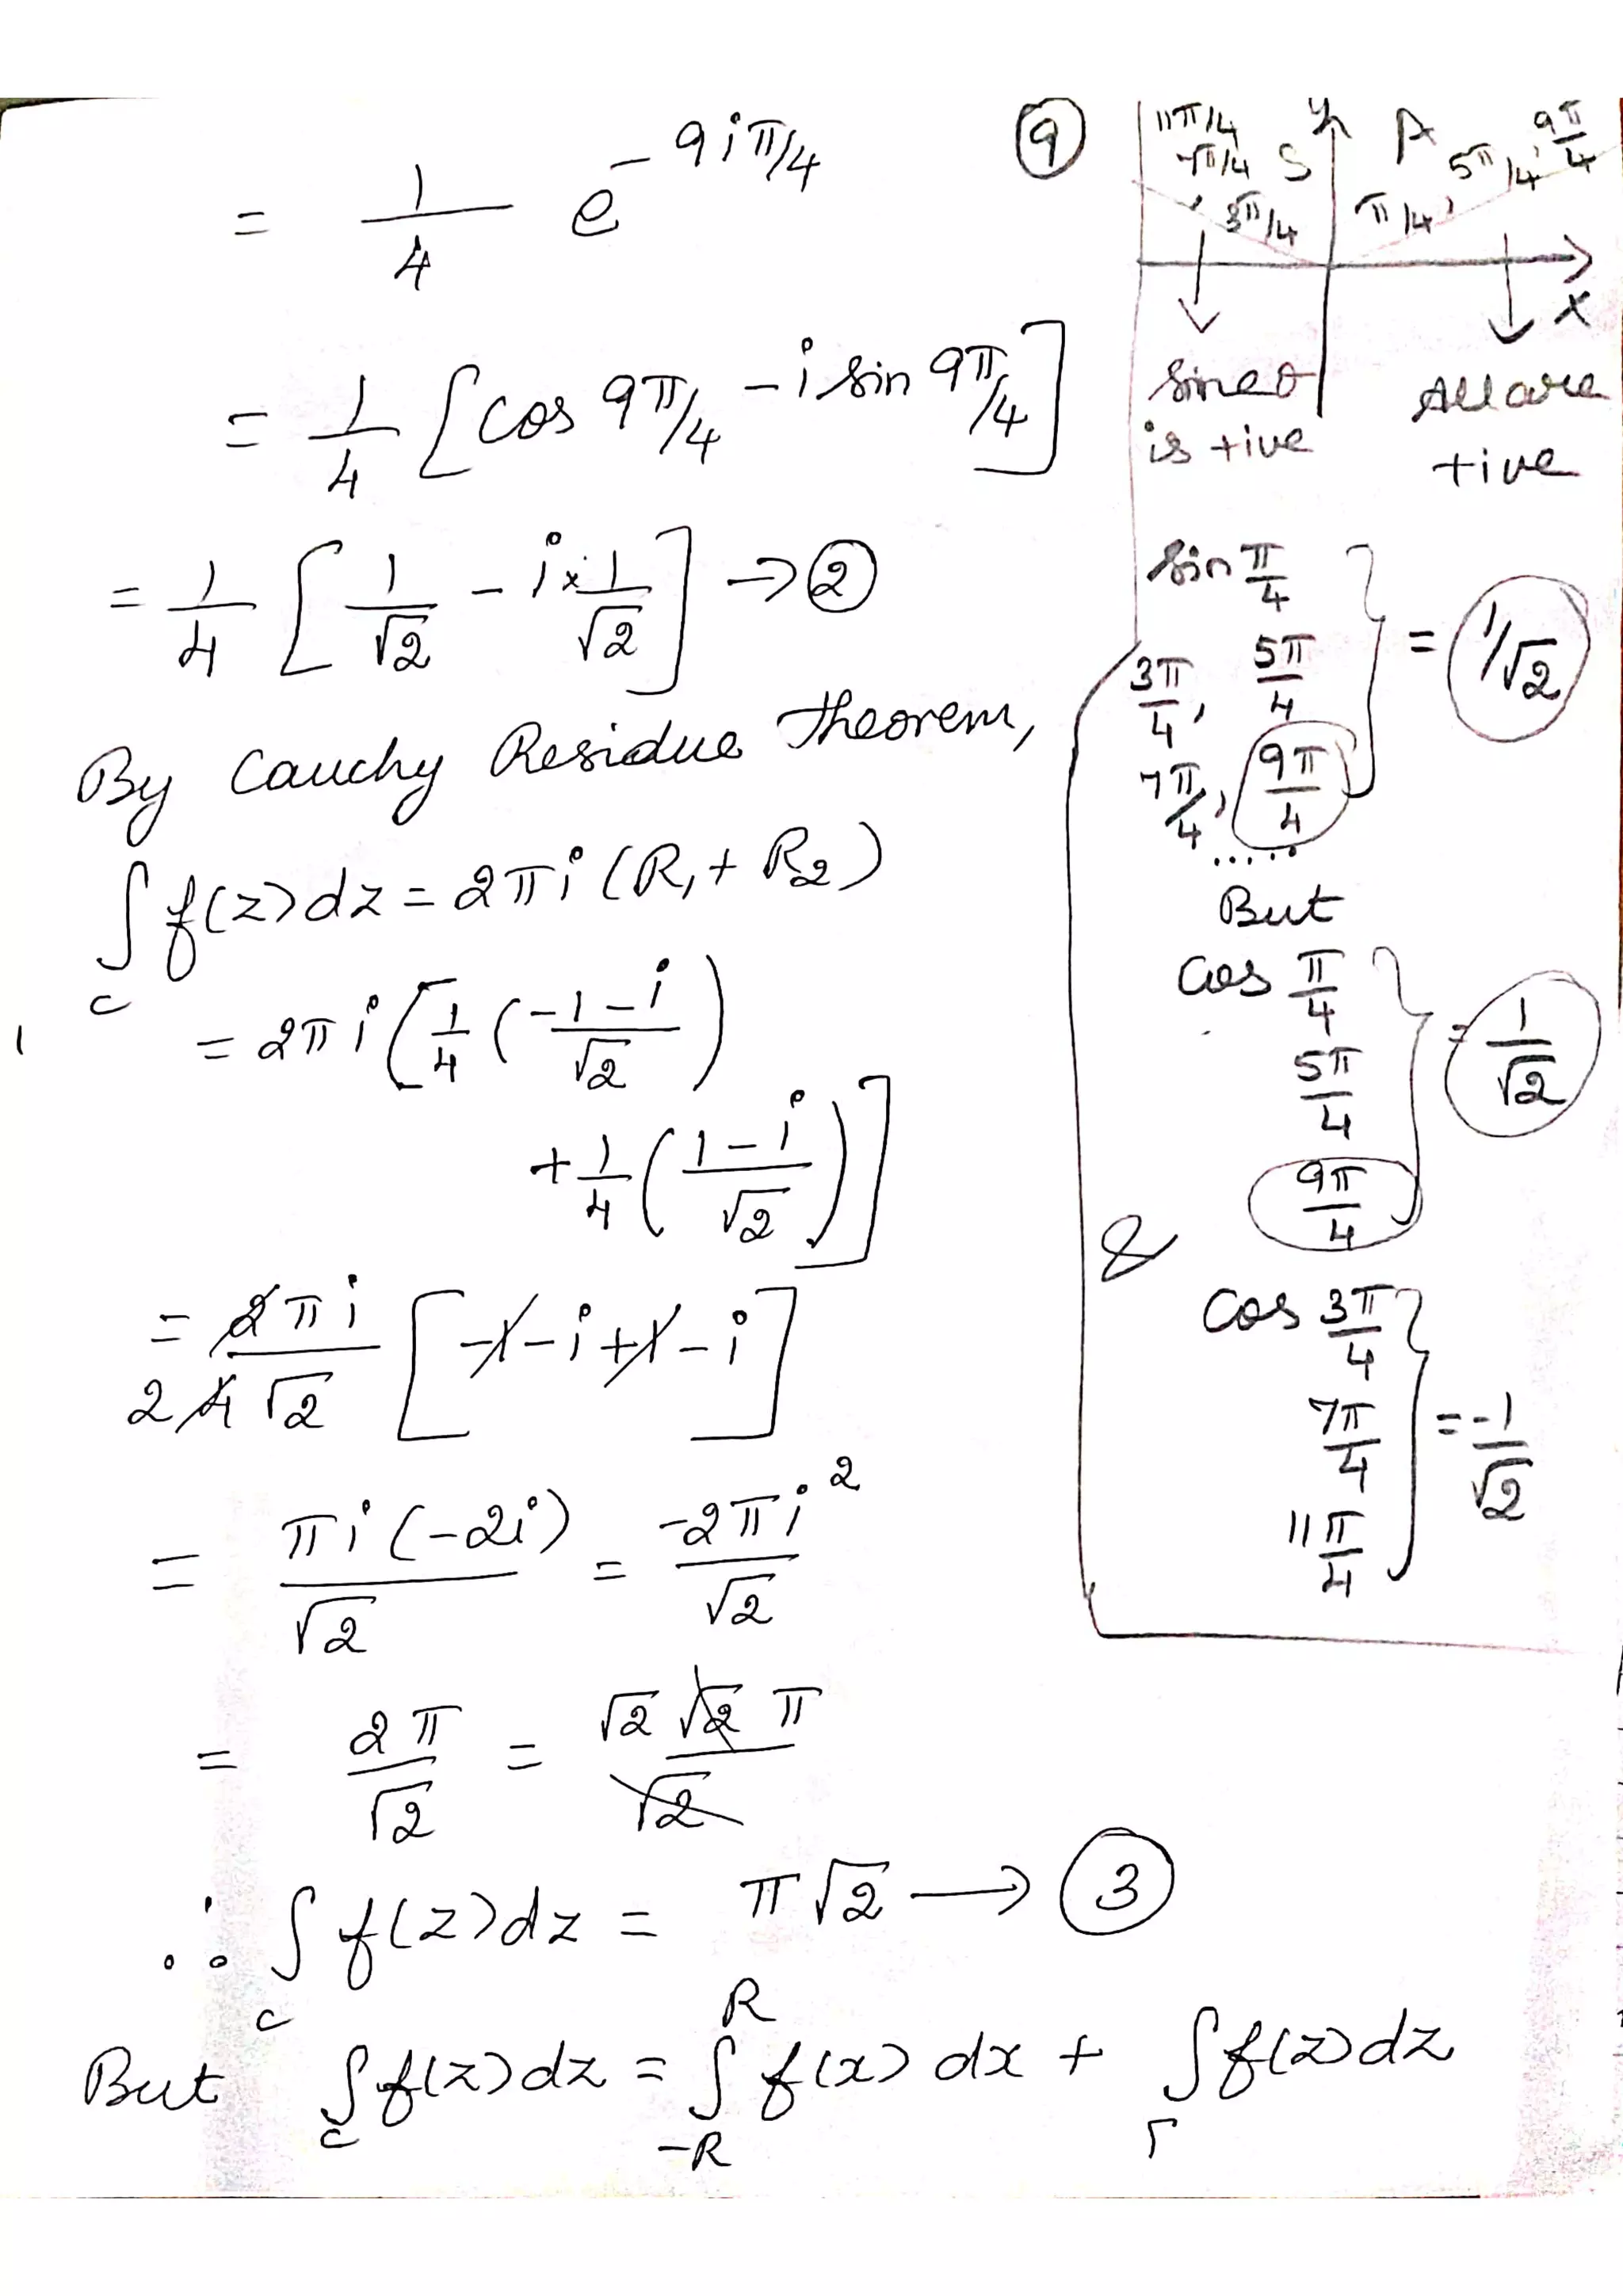 = 1/4 e^{-9iπ/4}
= 1/4 [cos 9π/4 - i sin 9π/4]
= 1/4 [1/√2 - i × 1/√2] → ②
By Cauchy Residue Theorem,
∫_c f(z)dz = 2πi (R₁ + R₂)
= 2πi [1/4 ((-1-i)/√2)
+ 1/4 ((1-i)/√2)]
= 2πi/(2 4√2) [-1-i+1-i]
= πi(-2i)/√2 = -2πi²/√2
= 2π/√2 = √2 √2 π/√2
∴ ∫_c f(z)dz = π√2 → ③
But ∫_c f(z)dz = ∫_{-R}^{R} f(x) dx + ∫_Γ f(z)dz
⑨
11π/4 y A 9π/4
7π/4 S 5π/4,
, 3π/4 π/4,
x
sine θ All are
is +ive +ive
sin π/4
3π/4, 5π/4 = 1/√2
7π/4, 9π/4
.....
But
cos π/4
5π/4 = 1/√2
9π/4
&
cos 3π/4
7π/4 = -1/√2
11π/4